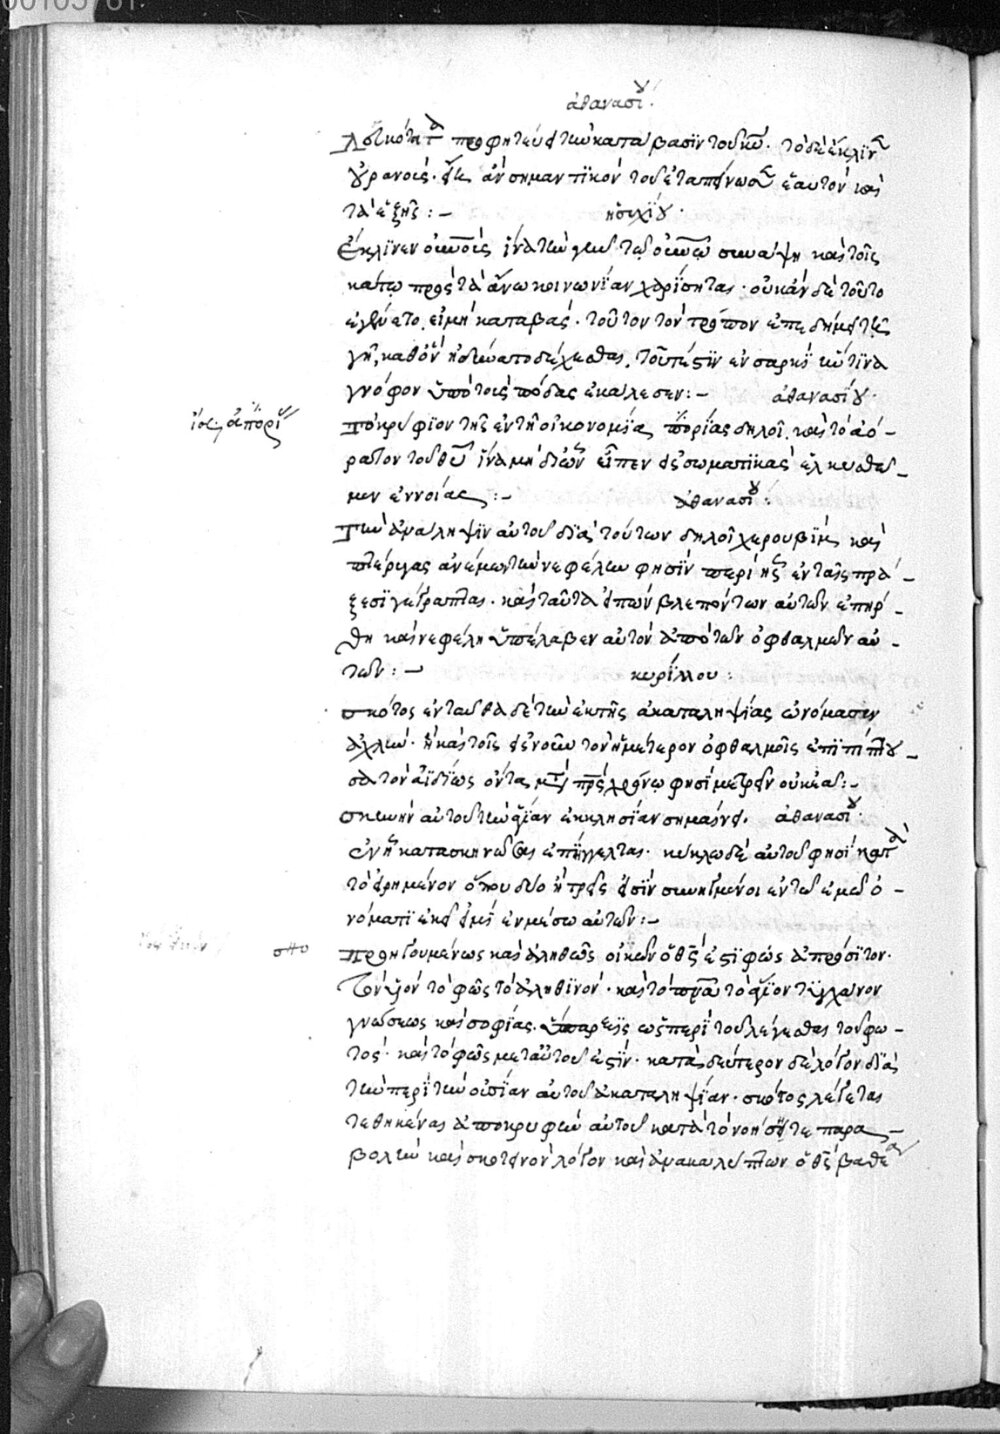 ἀθανασίου·
προφητεύει τὴν κατάβασιν τοῦ κυ. τὸ δὲ ἔκλινεν
οὐρανούς. ἀντὶ σημαντικὸν τοῦ ἐταπείνωσεν ἑαυτὸν καὶ
τὰ ἑξῆς :- ἡσυχίου·
Ἔκλινεν οὐνοὺς ἵνα τὴν γῆν τῷ οὐνῷ συνάψῃ καὶ τοῖς
κάτω πρὸς τὰ ἄνω κοινωνίαν χαρίσηται· οὐκ ἂν δὲ τοῦτο
ἐγένετο, εἰ μὴ καταβάς. τοῦτον τὸν τρόπον ἐπεδήμει τῇ
γῇ, καθ' ὃν ἠδύνατο δέχεσθαι. τοῦτέστιν ἐν σαρκὶ ἥντινα
γνόφον ὑπὸ τοὺς πόδας ἐκάλεσεν :- ἀθανασίου·
Τὸ κρύφιον τῆς ἐν τῇ οἰκονομίᾳ πορείας δηλοῖ. καὶ τὸ ἀό-
ρατον τοῦ θυ ἵνα μὴ δι' ὧν εἶπεν εἰς σωματικὰς ἑλκυσθῶ-
μεν ἐννοίας :- ἀθανασίου :
Τὴν ἀνάληψιν αὐτοῦ διὰ τούτων δηλοῖ χερουβὶμ καὶ
πτέρυγας ἀνέμων τὴν νεφέλην φησὶν περὶ ἧς ἐν ταῖς πρά-
ξεσι γέγραπται. καὶ ταῦτα εἰπὼν βλεπόντων αὐτῶν ἐπήρ-
θη καὶ νεφέλη ὑπέλαβεν αὐτὸν ἀπὸ τῶν ὀφθαλμῶν αὐ-
τῶν :- κυρίλλου :
σκότος ἐνταῦθα δὲ τὴν ἐκ τῆς ἀκαταληψίας ὠνόμασεν
ἀχλὺν. ἣ καὶ τοῖς εἰς νοῦν τὸν ἡμέτερον ὀφθαλμοῖς ἐπιπίπτου-
σα τὸν ἀϊδίως ὄντα
σκηνὴν αὐτοῦ τὴν ἁγίαν ἐκκλησίαν σημαίνει. ἀθανασίου·
ἐν ᾗ κατασκηνῶσαι ἐπήγγελται. κύκλῳ δὲ αὐτοῦ φησὶ κατὰ
τὸ εἰρημένον ὅπου δύο ἢ τρεῖς εἰσὶν συνηγμένοι ἐν τῷ ἐμῷ ὀ-
νόματι ἐκεῖ εἰμὶ ἐν μέσῳ αὐτῶν :-
Προηγουμένως καὶ ἀληθῶς οἰκῶν ὁ θς ἐστὶ φῶς ἀπρόσιτον.
Τὸν υἱὸν τὸ φῶς τὸ ἀληθινόν· καὶ τὸ πνα τὸ ἅγιον τύγχανον
γνώσεως καὶ σοφίας. ὕπαρξις ὥσπερ τοῦ λέγεσθαι τοῦ φω-
τός· καὶ τὸ φῶς μετ' αὐτοῦ ἐστίν· κατὰ δεύτερον δὲ λόγον διὰ
τὴν περὶ τὴν οὐσίαν αὐτοῦ ἀκαταληψίαν· σκότος λέγεται
τεθηκέναι ἀποκρυφὴν αὐτοῦ κατὰ τὸ νοήσει τε παρα-
βολὴν καὶ σκοτεινὸν λόγον καὶ ἀνακαλύπτων ὁ θς βαθέα